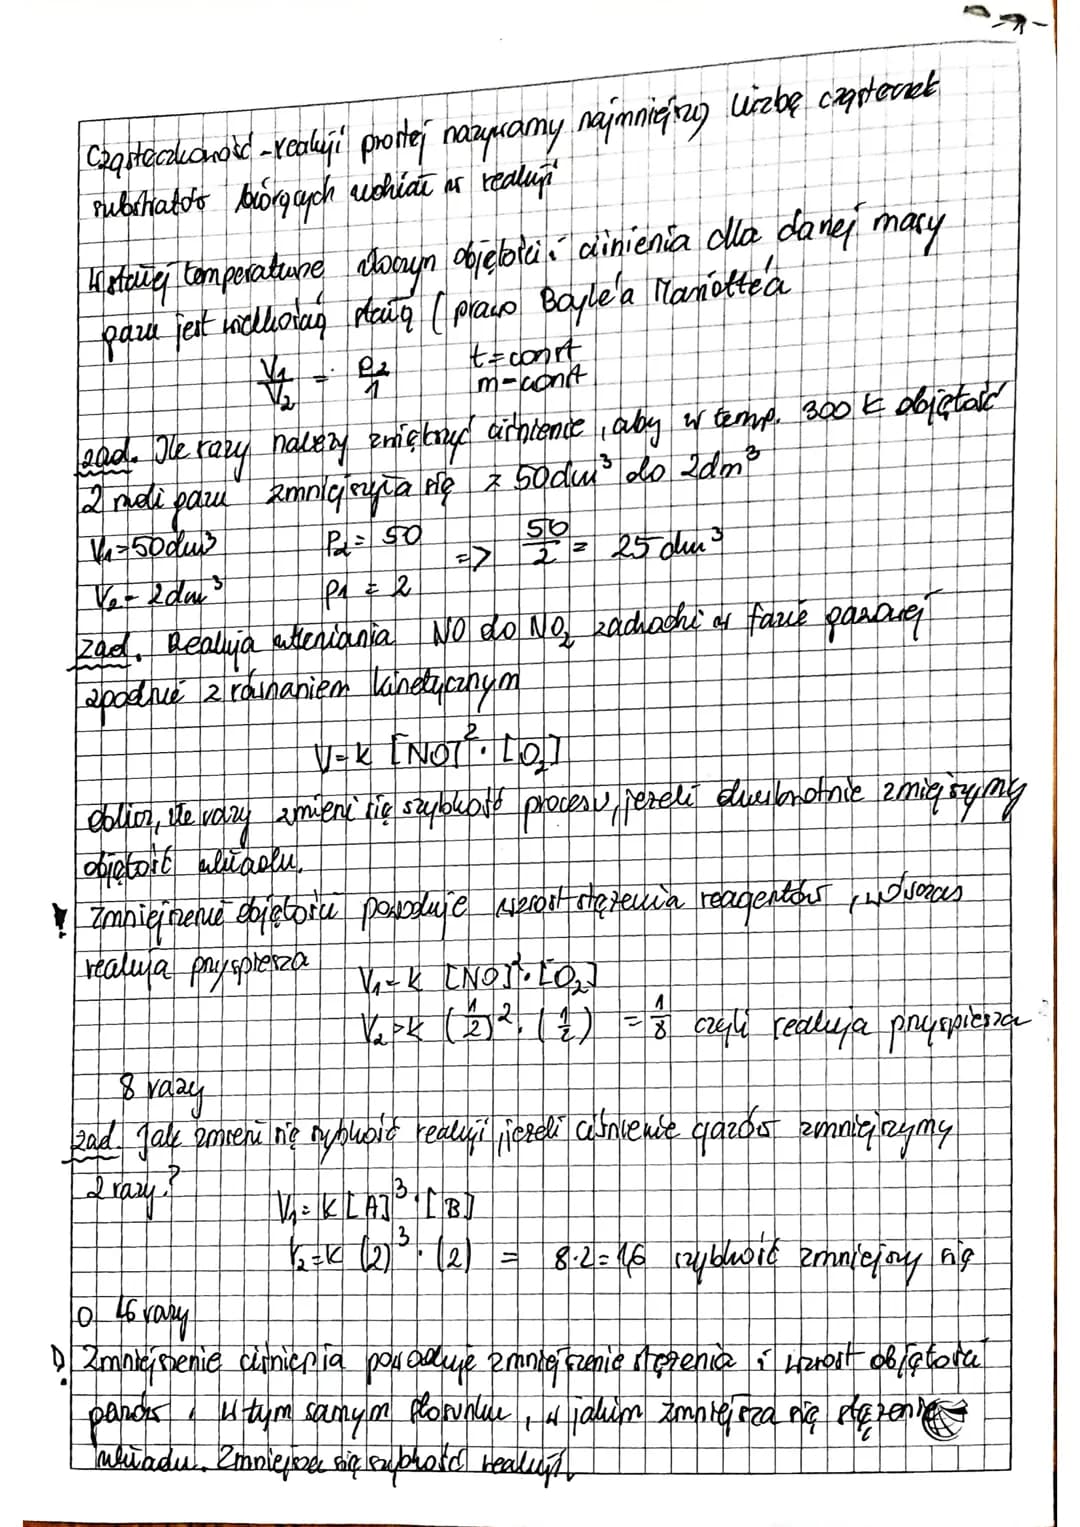 -1-
Cząsteczkowość - reakcji prostej nazywamy najmniejszą liczbę cząsteczek
substratów biorących udział w reakcji
W stałej temperaturze iloczyn objętości i ciśnienia dla danej masy
gazu jest wielkością stałą ( prawo Boyle'a Mariotte'a
V₁/V₂ = P₂/1 t=const
m-const
zad. Ile razy należy zwiększyć ciśnienie, aby w temp. 300 K objętość
2 moli gazu zmniejszyła się z 50dm³ do 2dm³
V₁=50dm³ P₂= 50 => 50/2 = 25 dm³
V₂- 2dm³ P₁ = 2
zad. Reakcja utleniania NO do NO₂ zachodzi w fazie gazowej
zgodnie z równaniem kinetycznym
V=k [NO]². [O₂]
oblicz, ile razy zmieni się szybkość procesu, jeżeli dwukrotnie zmniejszymy
objętość układu.
! Zmniejszenie objętości powoduje wzrost stężenia reagentów, wówczas
reakcja przyspiesza V₁=k [NO]². [O₂]
V₂=k (1/2)². (1/2) = 1/8 czyli reakcja przyspiesza
8 razy
zad. Jak zmieni się szybkość reakcji jeżeli ciśnienie gazów zmniejszymy
2 razy?
V₁= k[A]³. [B]
V₂=k (2)³. (2) = 8·2=16 szybkość zmniejszy się
o 16 razy
! Zmniejszenie ciśnienia powoduje zmniejszenie stężenia i wzrost objętości
gazów, w tym samym stosunku, w jakim zmniejsza się stężenie
układu. Zmniejsza się szybkość reakcji.